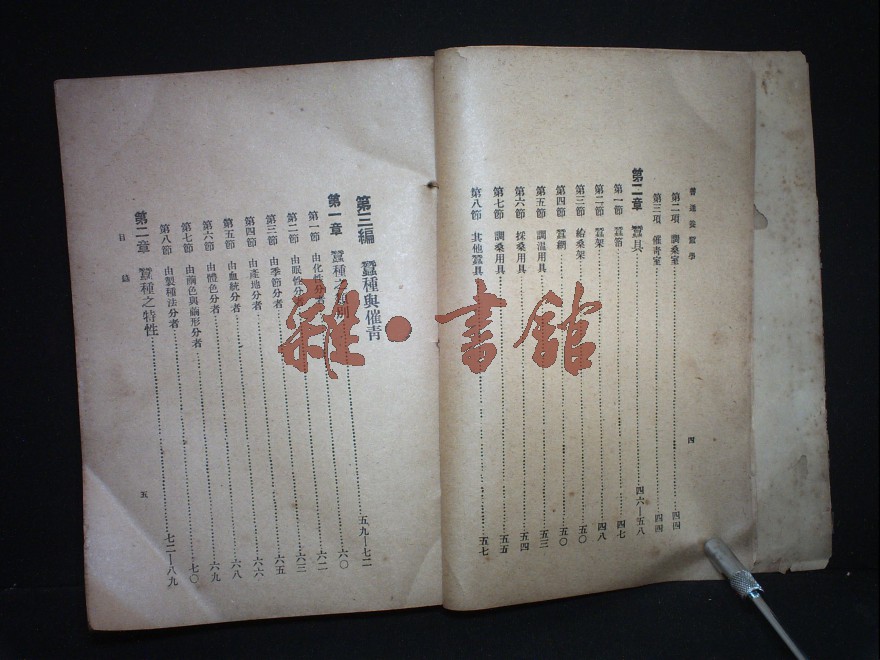 普通養蠶學
第二項 調桑室 四四
第三項 催青室 四四
第二章 蠶具 四六—五八
第一節 蠶箔 四七
第二節 蠶架 四八
第三節 給桑架 五〇
第四節 蠶網 五〇
第五節 調溫用具 五三
第六節 採桑用具 五四
第七節 調桑用具 五五
第八節 其他蠶具 五七
四
第三編 蠶種與催青
第一章 蠶種之類別 五九—七二
第一節 由化性分者 六〇
第二節 由眠性分者 六二
第三節 由季節分者 六三
第四節 由產地分者 六五
第五節 由血統分者 六六
第六節 由體色分者 六八
第七節 由繭色與繭形分者 六九
第八節 由製種法分者 七〇
第二章 蠶種之特性 七二—八九
目錄
五
雜·書館